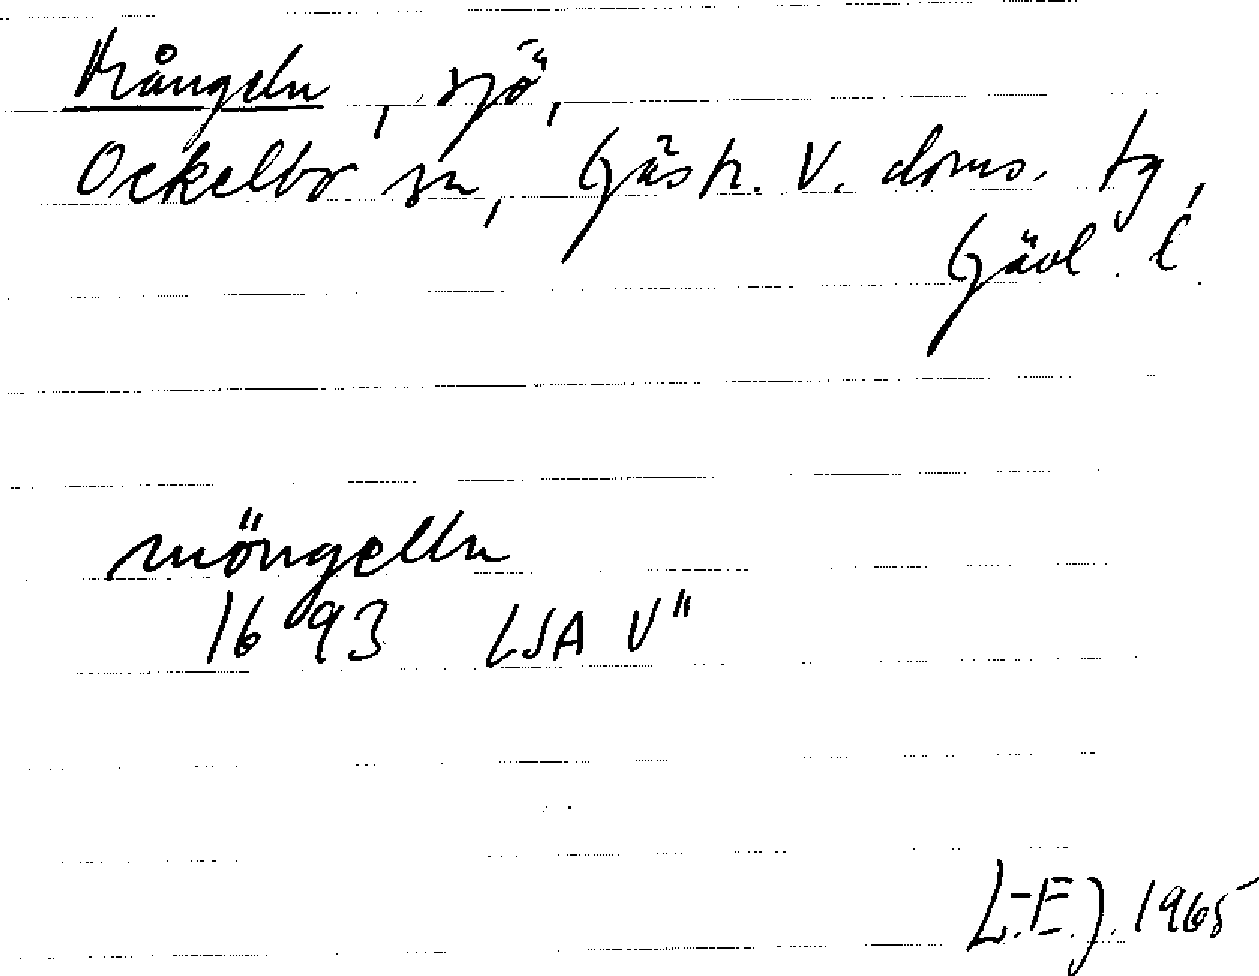 Mångeln, sjö,
Ockelbo sn, Gästr. V. doms. tg,
Gävl. l.
möngelln
1693 LSA V"
L.-E.J. 1965